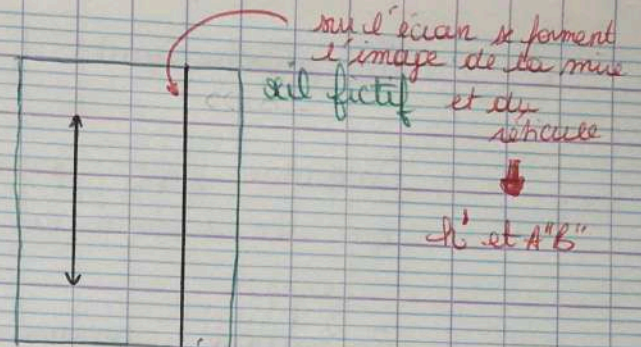 sur l'écran se forment
l'image de la mire
œil fictif et du
réticule
h' et A"B"